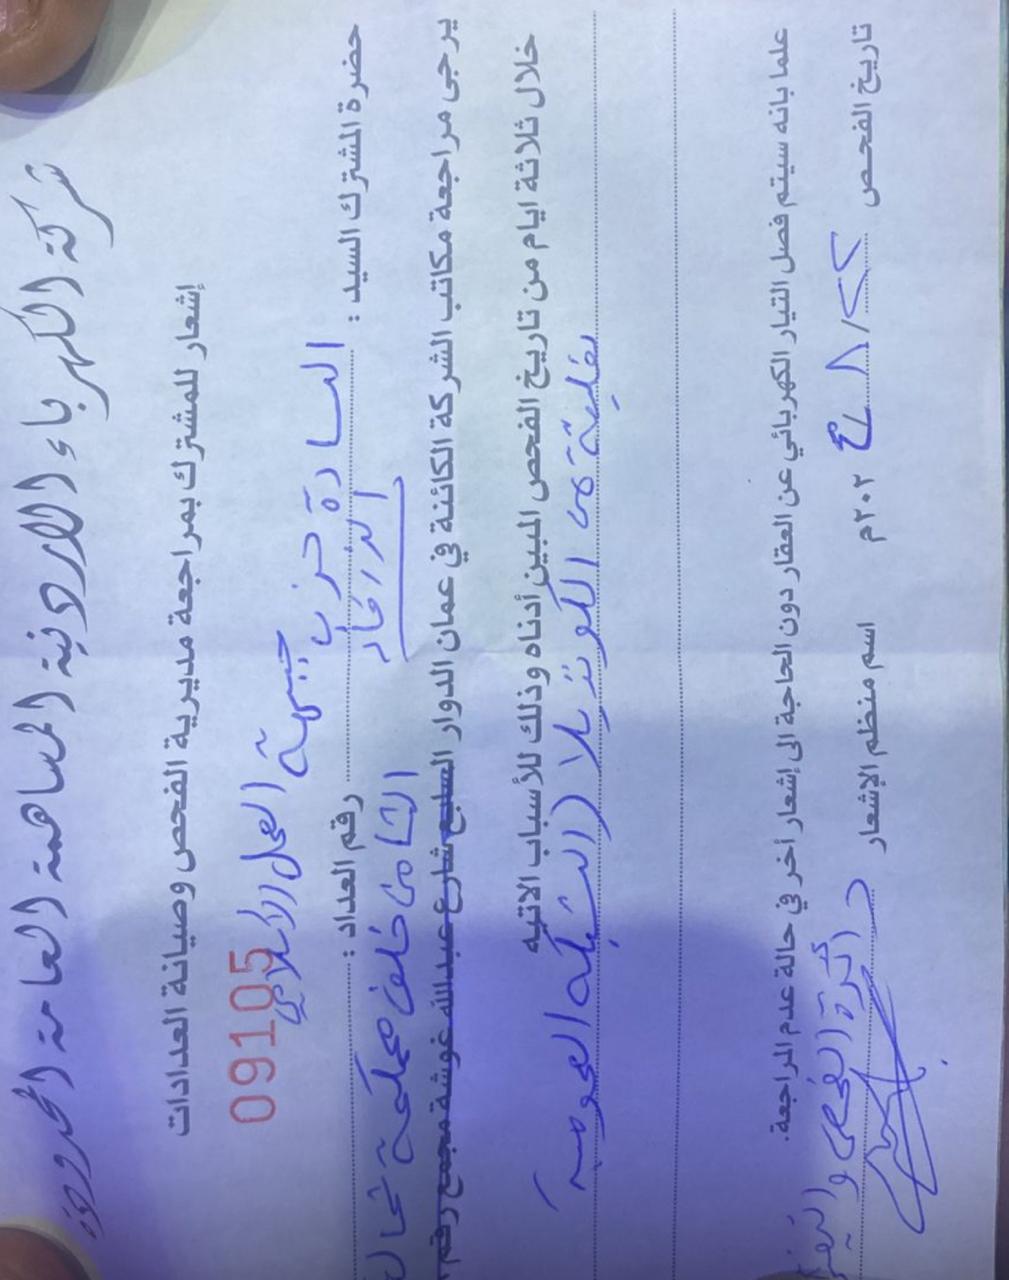 شركة الكهرباء الأردنية المساهمة العامة المحدودة
إشعار للمشترك بمراجعة مديرية الفحص وصيانة العدادات
09105
حضرة المشترك السيد : السادة حزب جبهة العمل الإسلامي
رقم العداد :
يرجى مراجعة مكاتب الشركة الكائنة في عمان الدوار السابع شارع عبدالله غوشة مجمع رقم
الثامن خلف
خلال ثلاثة ايام من تاريخ الفحص المبين أدناه وذلك للأسباب الاتيه
تغذية من (الشبكه العموميه
علما بانه سيتم فصل التيار الكهربائي عن العقار دون الحاجة الى إشعار أخر في حالة عدم المراجعة.
تاريخ الفحص ٢٢/٨/ ٢٠٢٤م اسم منظم الإشعار
دائرة الفحص والتفتيش